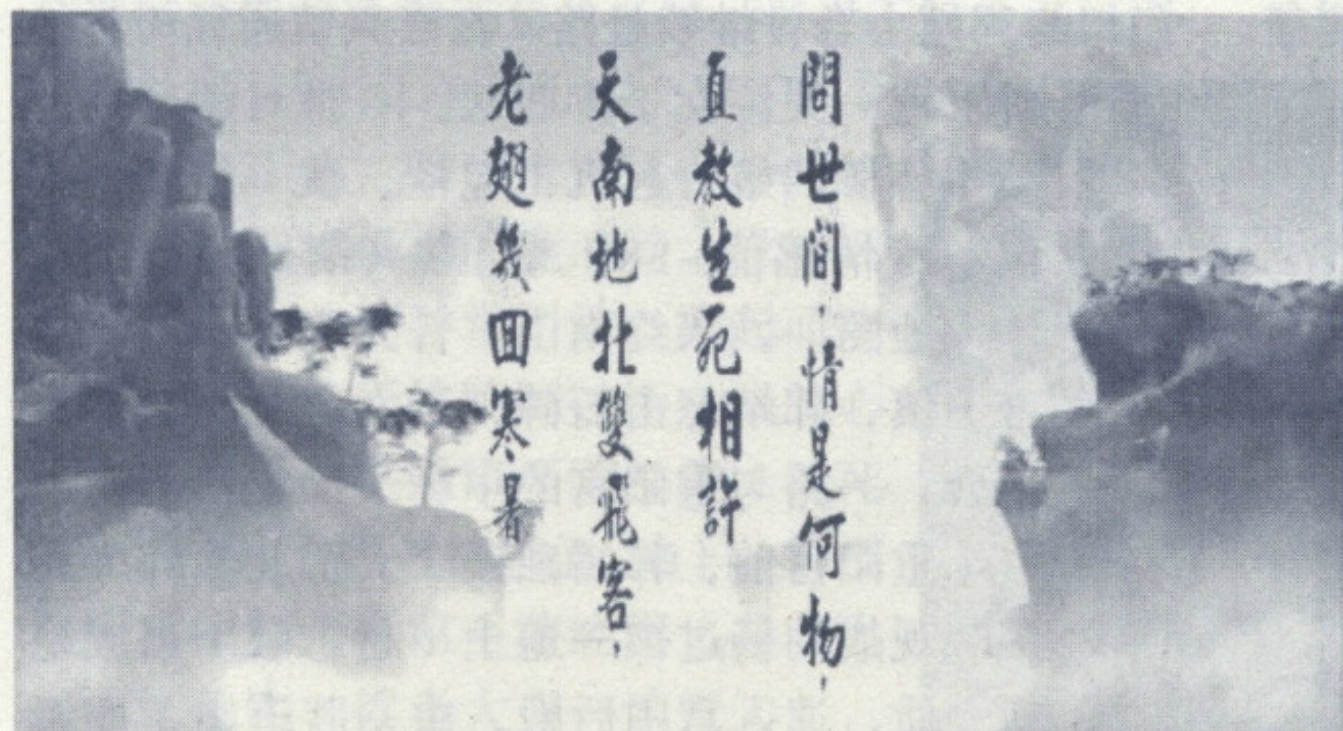 問世間，情是何物，
直教生死相許
天南地北雙飛客，
老翅幾回寒暑